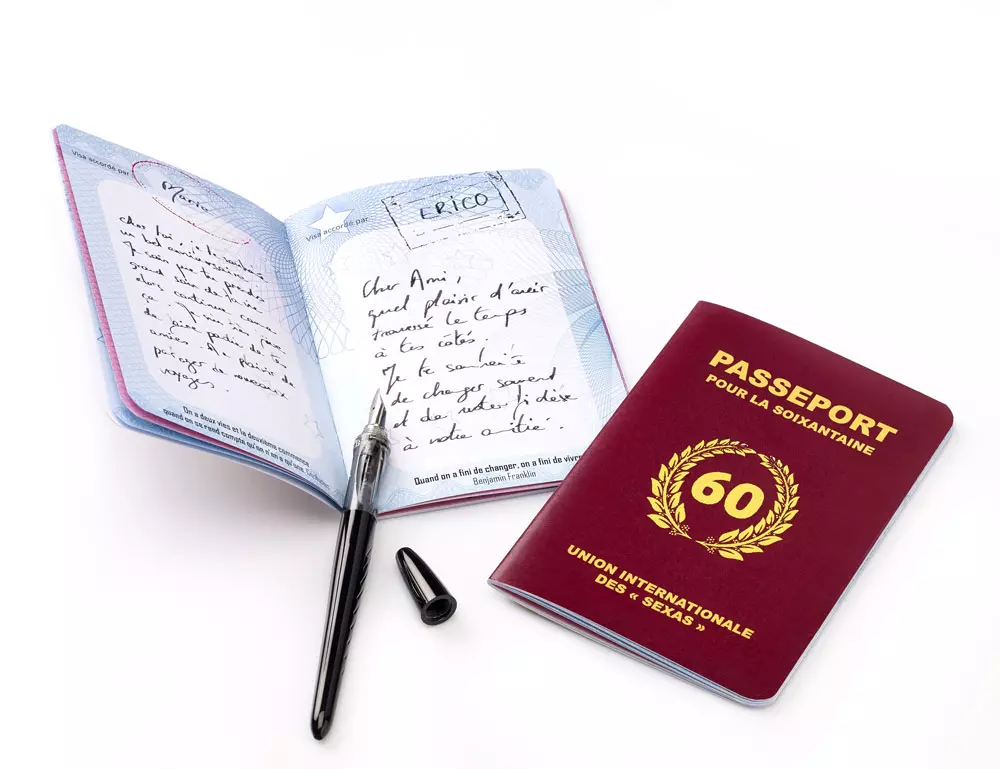 Visa accordé par
Mario
cher toi, je te souhaite
un bel anniversaire.
Je sais que tu prends
grand soin de ta vie
alors continue comme
ça
de faire partie de tes
amies. Au plaisir de
partager de nouveaux
voyages.
On a deux vies et la deuxième commence
quand on se rend compte qu'on n'en a qu'une
Visa accordé par
ERICO
Cher Ami,
quel plaisir d'avoir
traversé le temps
à tes côtés.
Je te souhaite
de changer souvent
et de rester fidèle
à notre amitié.
Quand on a fini de changer, on a fini de vivre
Benjamin Franklin
PASSEPORT
POUR LA SOIXANTAINE
60
UNION INTERNATIONALE
DES « SEXAS »